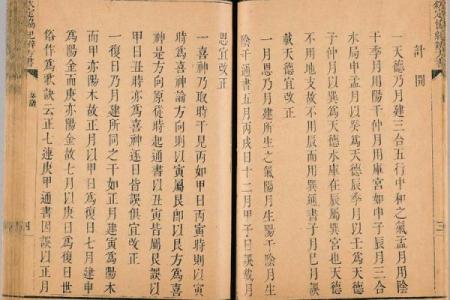 計開
一天德乃月建三合五行中和之氣孟月用陰
干季月用陽干仲月用庫宮如申子辰月三合
水局申孟月以癸為天德辰季月以壬為天德
子仲月以巽為天德水庫在辰屬巽宮也天德
不用地支故不用辰而用巽通書子月巳月誤
載天德宜改正
一月恩乃月建所生之氣陽月生陽干陰月生
陰干通書五月丙戌日十二月甲子日誤載月
恩宜改正
一喜神乃取時干見丙如甲日丙寅時則以寅
時為喜神論方向則以寅屬艮即以艮方為喜
神是方向原從時起通書以丑寅皆屬艮誤以
甲日丑時亦為喜神乙日皆誤俱宜改正
一復日乃月建所同之干如正月建寅為陽木
而甲亦陽木故正月以甲日為復日七月建申
為陽金而庚亦陽金故七月以庚日為復日世
俗作為歌訣云正七連庚甲通書因誤以正月